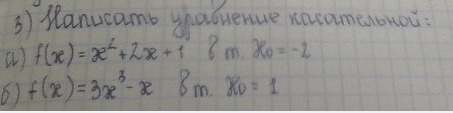 3) Написать уравнение касательной:
а) f(x) = x² + 2x + 1 в т. x₀ = -2
б) f(x) = 3x³ - x в т. x₀ = 1